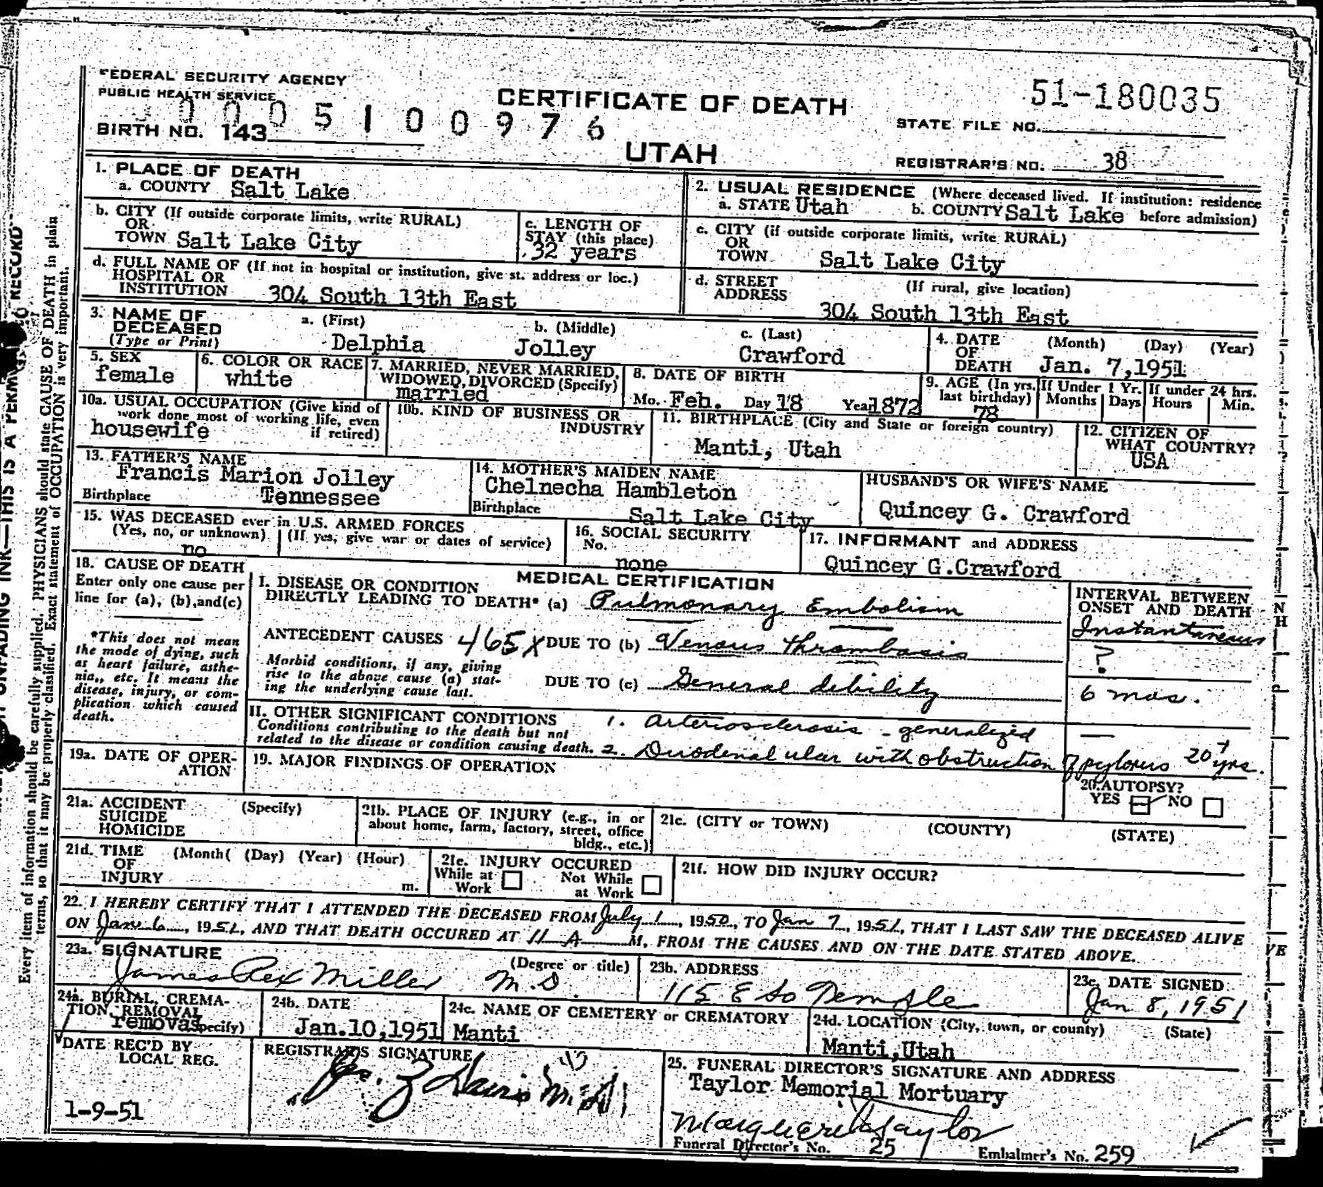 FEDERAL SECURITY AGENCY
PUBLIC HEALTH SERVICE
CERTIFICATE OF DEATH
51-180035
STATE FILE NO.
0005100976
BIRTH NO. 143
UTAH
REGISTRAR'S NO. 38
1. PLACE OF DEATH
a. COUNTY Salt Lake
2. USUAL RESIDENCE (Where deceased lived. If institution: residence
a. STATE Utah b. COUNTY Salt Lake before admission)
b. CITY (If outside corporate limits, write RURAL)
OR
TOWN Salt Lake City
c. LENGTH OF
STAY (this place)
32 years
c. CITY (if outside corporate limits, write RURAL)
OR
TOWN Salt Lake City
d. FULL NAME OF (If not in hospital or institution, give st. address or loc.)
HOSPITAL OR
INSTITUTION 304 South 13th East
d. STREET (If rural, give location)
ADDRESS
304 South 13th East
3. NAME OF a. (First) b. (Middle) c. (Last)
DECEASED
(Type or Print) Delphia Jolley Crawford
4. DATE (Month) (Day) (Year)
OF
DEATH Jan. 7,1951
5. SEX
female
6. COLOR OR RACE
white
7. MARRIED, NEVER MARRIED,
WIDOWED, DIVORCED (Specify)
married
8. DATE OF BIRTH
Mo. Feb. Day 18 Year 1872
9. AGE (In yrs. last birthday)
78
If Under 1 Yr.
Months Days
If under 24 hrs.
Hours Min.
10a. USUAL OCCUPATION (Give kind of
work done most of working life, even
if retired)
housewife
10b. KIND OF BUSINESS OR
INDUSTRY
11. BIRTHPLACE (City and State or foreign country)
Manti, Utah
12. CITIZEN OF
WHAT COUNTRY?
USA
13. FATHER'S NAME
Francis Marion Jolley
Birthplace Tennessee
14. MOTHER'S MAIDEN NAME
Chelnecha Hambleton
Birthplace Salt Lake City
HUSBAND'S OR WIFE'S NAME
Quincey G. Crawford
15. WAS DECEASED ever in U.S. ARMED FORCES
(Yes, no, or unknown) (If yes, give war or dates of service)
no
16. SOCIAL SECURITY
No.
none
17. INFORMANT and ADDRESS
Quincey G.Crawford
18. CAUSE OF DEATH
Enter only one cause per
line for (a), (b),and(c)
*This does not mean
the mode of dying, such
as heart failure, asthe-
nia, etc. It means the
disease, injury, or com-
plication which caused
death.
MEDICAL CERTIFICATION
I. DISEASE OR CONDITION
DIRECTLY LEADING TO DEATH* (a) Pulmonary Embolism
ANTECEDENT CAUSES 465X DUE TO (b) Venous thrombosis
Morbid conditions, if any, giving
rise to the above cause (a) stat-
ing the underlying cause last.
DUE TO (c) General debility
II. OTHER SIGNIFICANT CONDITIONS
Conditions contributing to the death but not
related to the disease or condition causing death.
1. Arteriosclerosis - generalized
2. Duodenal ulcer with obstruction of pylorus 20+ yrs.
INTERVAL BETWEEN
ONSET AND DEATH
Instantaneous
?
6 mos.
—
19a. DATE OF OPER-
ATION
19. MAJOR FINDINGS OF OPERATION
20. AUTOPSY?
YES NO
21a. ACCIDENT (Specify)
SUICIDE
HOMICIDE
21b. PLACE OF INJURY (e.g., in or
about home, farm, factory, street, office
bldg., etc.)
21c. (CITY or TOWN) (COUNTY) (STATE)
21d. TIME (Month( (Day) (Year) (Hour)
OF
INJURY m.
21e. INJURY OCCURED
While at Work Not While at Work
21f. HOW DID INJURY OCCUR?
22. I HEREBY CERTIFY THAT I ATTENDED THE DECEASED FROM July 1, 1950, TO Jan 7, 1951, THAT I LAST SAW THE DECEASED ALIVE
ON Jan 6, 1951, AND THAT DEATH OCCURED AT 11 A M, FROM THE CAUSES AND ON THE DATE STATED ABOVE.
23a. SIGNATURE (Degree or title)
James Rex Miller M.D.
23b. ADDRESS
115 E So Temple
23c. DATE SIGNED
Jan 8, 1951
24a. BURIAL, CREMA-
TION, REMOVAL
(Specify)
removal
24b. DATE
Jan.10,1951
24c. NAME OF CEMETERY or CREMATORY
Manti
24d. LOCATION (City, town, or county) (State)
Manti,Utah
DATE REC'D BY
LOCAL REG.
1-9-51
REGISTRAR'S SIGNATURE
25. FUNERAL DIRECTOR'S SIGNATURE AND ADDRESS
Taylor Memorial Mortuary
Marguerite Taylor
Funeral Director's No. 25 Embalmer's No. 259
Every item of information should be carefully supplied. PHYSICIANS should state CAUSE OF DEATH in plain
terms, so that it may be properly classified. Exact statement of OCCUPATION is very important.